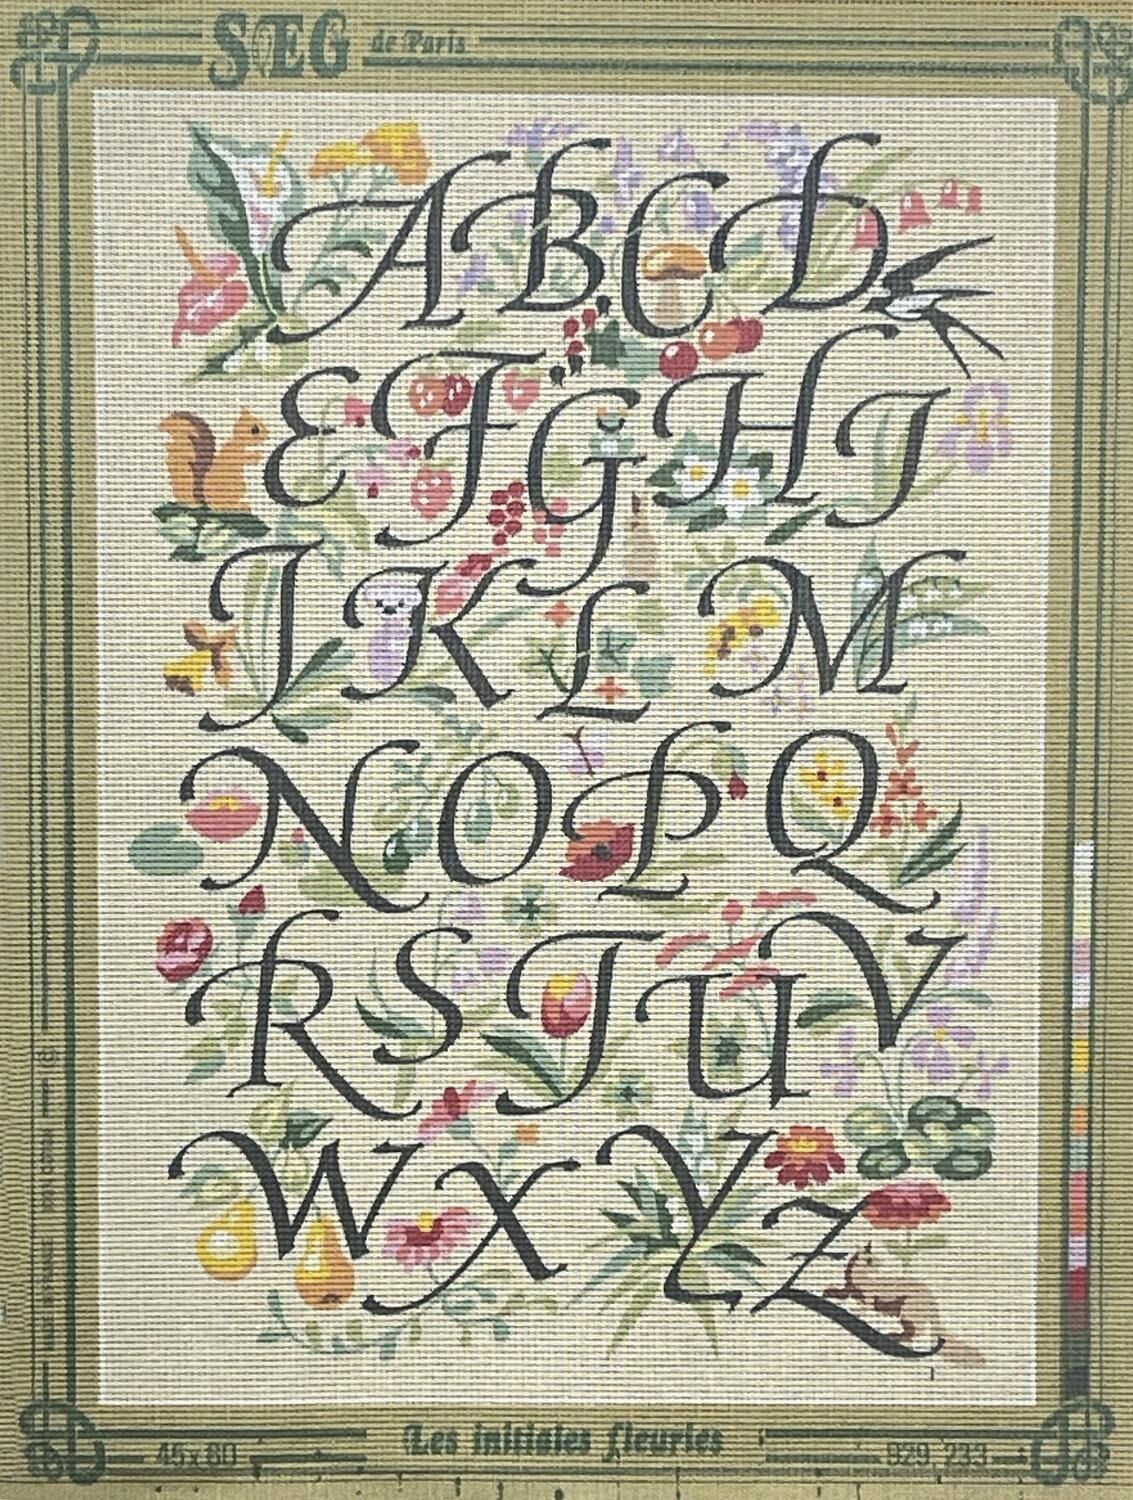 SEG de Paris
A B C D
E F G H I
J K L M
N O P Q
R S T U V
W X Y Z
Les initiales fleuries
45x60
929.233